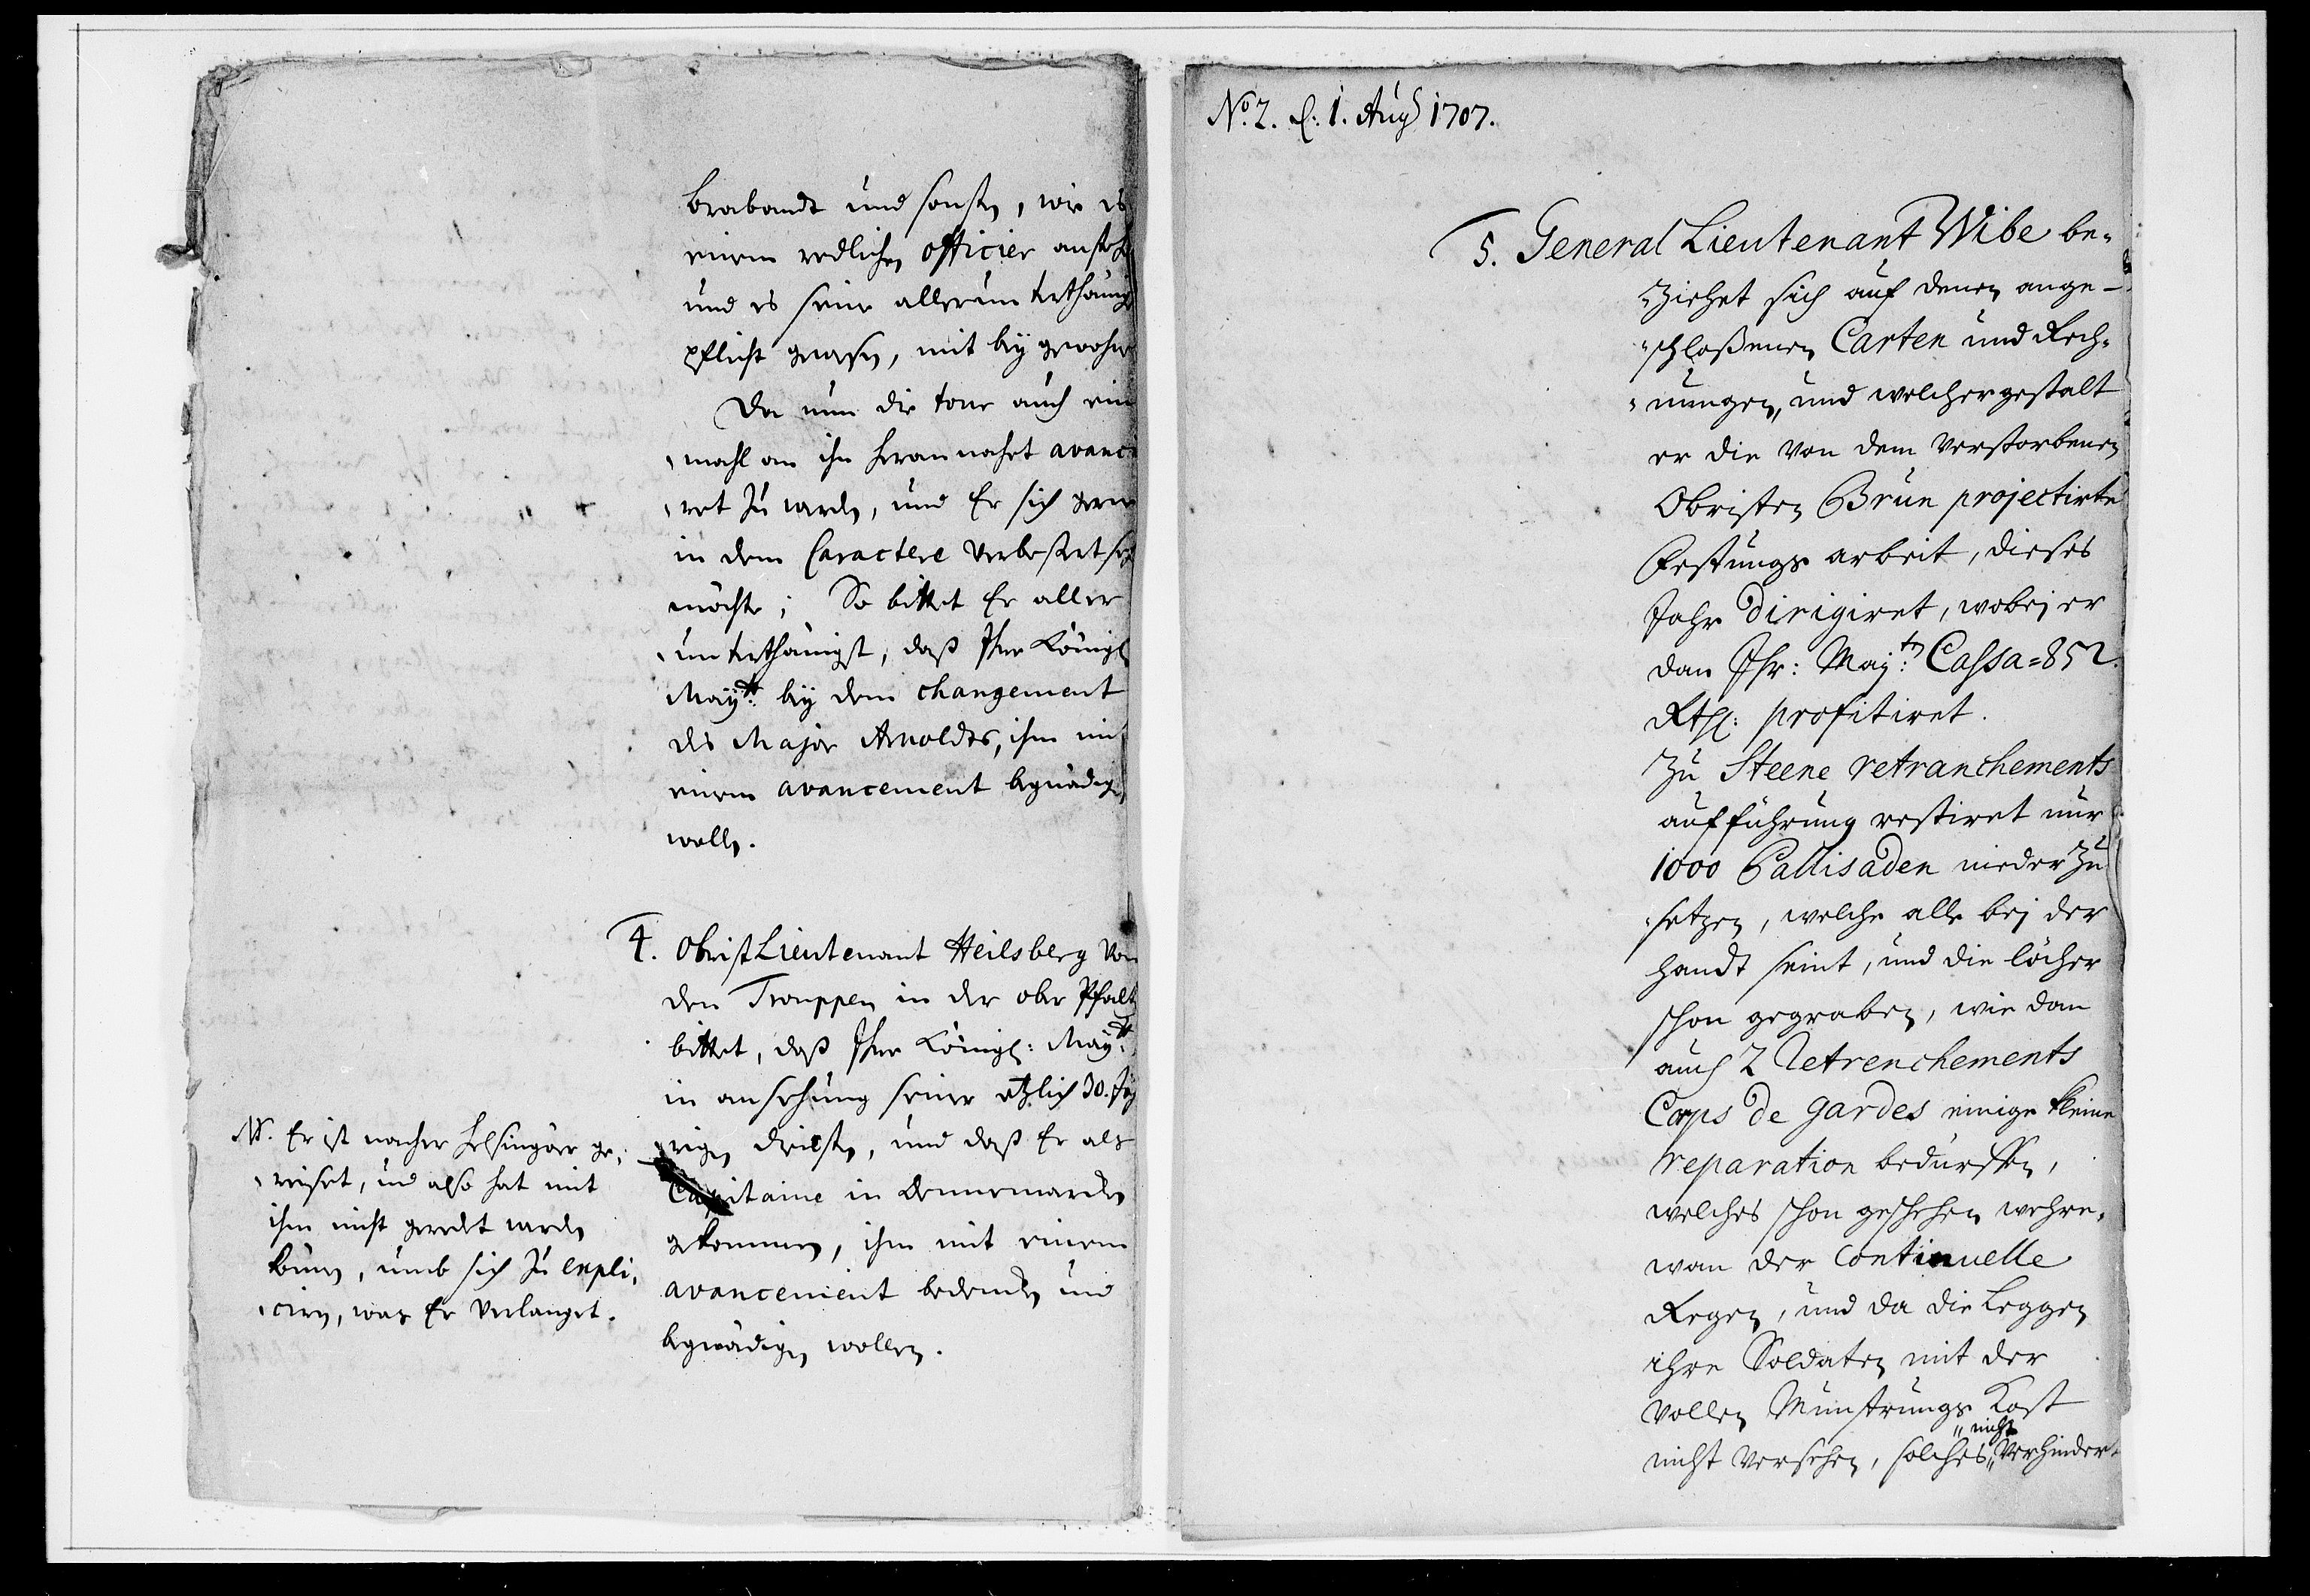 brabandt und sonsten, wie es
einem redlichen officier ansteh
und es seine allerunterthänigs
pflicht gewesen, mit bey gewohn
Da nun die tour auch ein
mahl an ihn heran nahet avanci
ret zu werden, und Er sich gern
in dem Caractere verbeßert seh
möchte; So bittet Er aller
unterthänigst, daß Ihre Königl
Maytt: bey dem changement
des Major Arnoldts, ihn mit
einem avancement begnädig
wolle.
4. Obrist Lieutenant Heilsberg von
den Trouppen in der ober Pfaltz
bittet, daß Ihre Königl: Maytt:
in ansehung seiner etzlich 30. Jäh
rigen diensten, und daß Er als
Capitaine in Dennemarcken
gekommen, ihn mit einem
avancement bedencken und
begnädigen wollen.
NB. Er ist nacher Helsingöer ge,
reiset, und also hat mit
ihm nicht geredet werden
können, umb sich zu expli,
ciren, was Er verlanget.
No. 2. d: 1. Aug 1707.
5. General Lieutenant Wibe be,
ziehet sich auf denen ange-
schloßenen Carten und Rech,
nungen, und welchergestalt
er die von dem verstorbenen
Obristen Brun projectirte
Festungs arbeit, dieses
Jahr dirigiret, wobej er
dan Ihr: Maytt: Cassa=852.
Rthl: profitiret.
Zu Steene retranchements
aufführung restiret nur
1000 Pallisaden nieder zu
setzen, welche alle bej der
handt seint, und die löcher
schon gegraben, wie dan
auch 2 Retrenchements
Corps de gardes einige kleine
reparation bedürffen,
welches schon geschehen wehre,
wan der continuelle
Regen, und da die Leggen
ihre Soldaten mit der
vollen Munstrungs Kost
nicht versehen, solches "nicht" verhindert